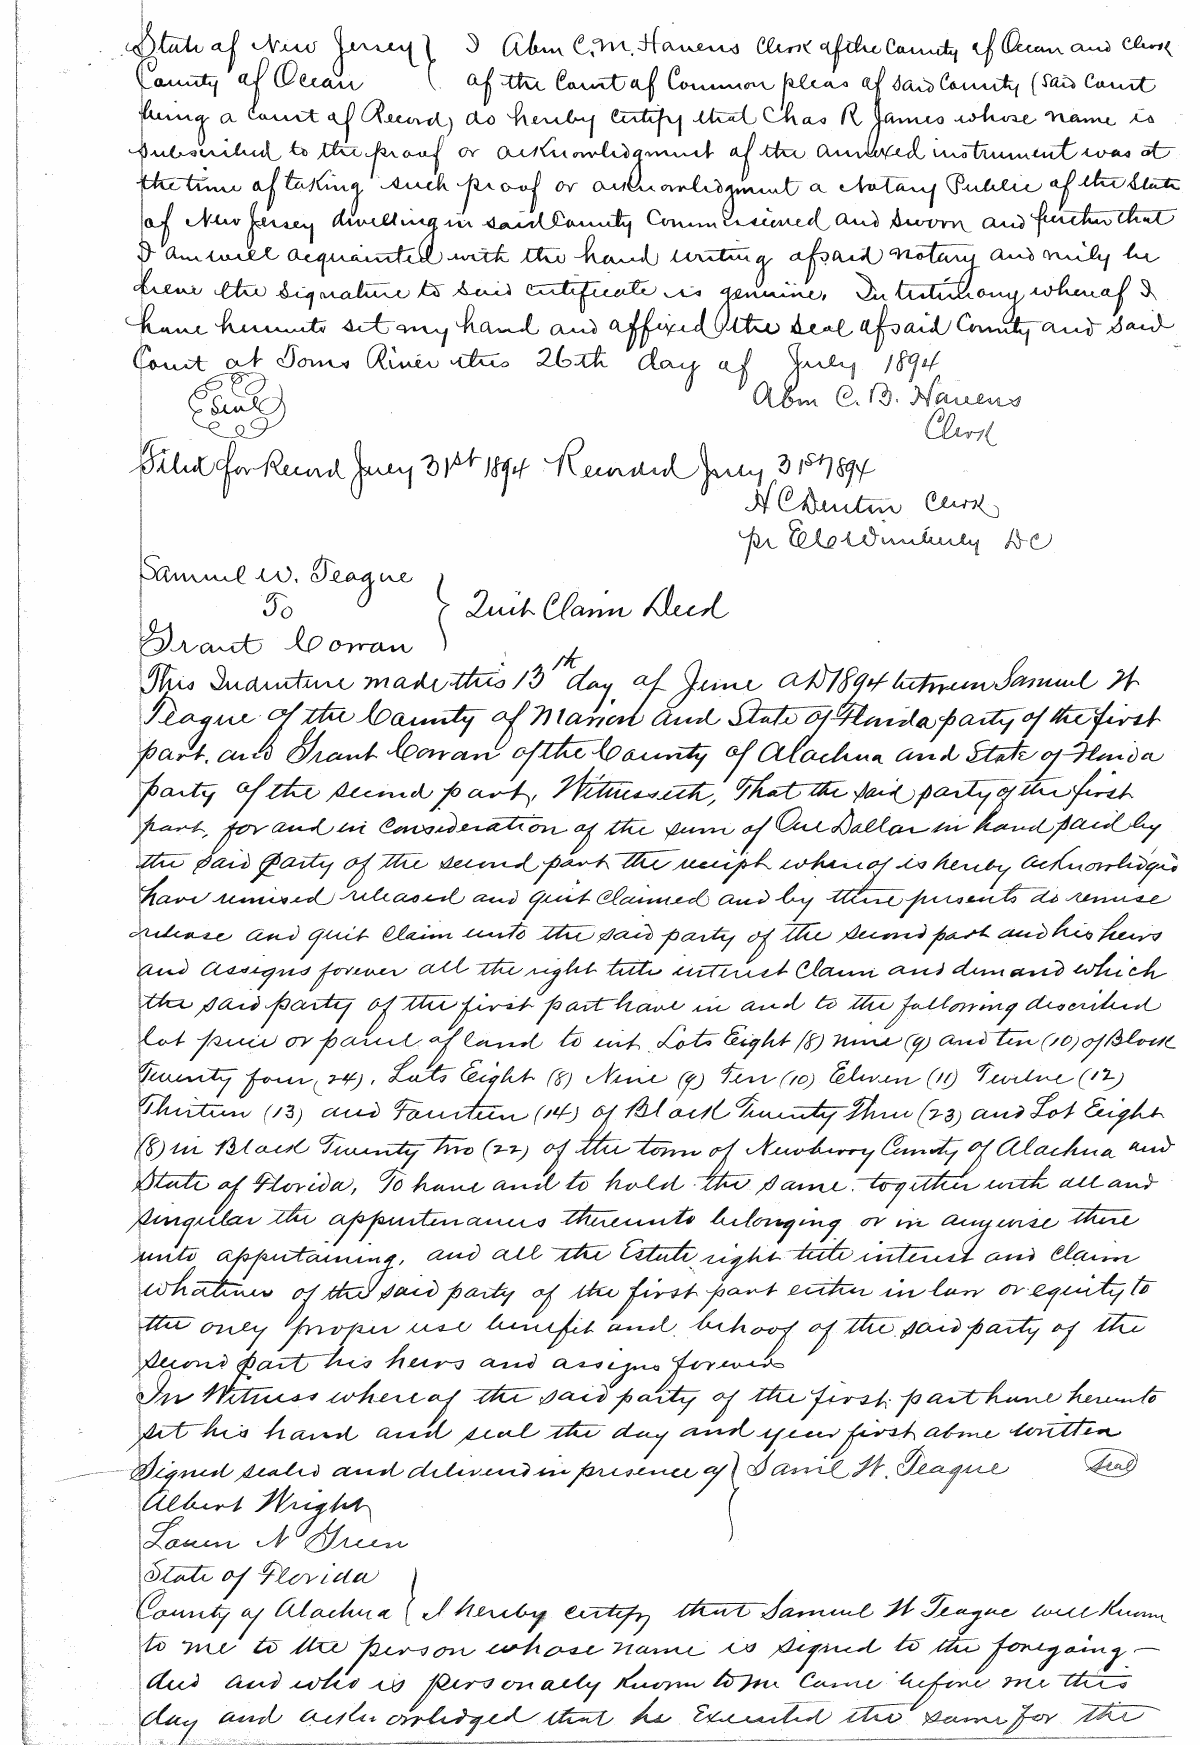 State of New Jersey } I Abm C. M. Havens Clerk of the County of Ocean and Clerk
County of Ocean { of the Court of Common pleas of said County (said Court
being a Court of Record) do hereby certify that Chas R James whose name is
subscribed to the proof or acknowledgment of the annexed instrument was at
the time of taking such proof or acknowledgment a Notary Public of the State
of New Jersey dwelling in said County Commissioned and sworn and further that
I am well acquainted with the hand writing of said notary and verily be
lieve the signature to said certificate is genuine. In testimony whereof I
have hereunto set my hand and affixed the seal of said County and said
Court at Toms River this 26th day of July 1894
(Seal) Abm C. B. Havens
Clerk
Filed for Record July 31st 1894 Recorded July 31st 1894
H C Denton Clerk
pr Wimberly DC
Samuel W. Teague
To } Quit Claim Deed
Grant Cowan
This Indenture made this 13th day of June AD 1894 between Samuel W
Teague of the County of Marion and State of Florida party of the first
part, and Grant Cowan of the County of Alachua and State of Florida
party of the second part, Witnesseth, That the said party of the first
part, for and in consideration of the sum of One Dollar in hand paid by
the said party of the second part the receipt whereof is hereby acknowledged
have remised released and quit claimed and by these presents do remise
release and quit claim unto the said party of the second part and his heirs
and assigns forever all the right title interest Claim and demand which
the said party of the first part have in and to the following described
lot piece or parcel of land to wit Lots Eight (8) nine (9) and ten (10) of Block
Twenty four (24), Lots Eight (8) Nine (9) Ten (10) Eleven (11) Twelve (12)
Thirteen (13) and Fourteen (14) of Block Twenty Three (23) and Lot Eight
(8) in Block Twenty two (22) of the town of Newberry County of Alachua and
State of Florida, To have and to hold the same together with all and
singular the appurtenances thereunto belonging or in anywise there
unto appertaining, and all the Estate right title interest and claim
whatever of the said party of the first part either in law or equity to
the only proper use benefit and behoof of the said party of the
second part his heirs and assigns forever
In Witness whereof the said party of the first part have hereunto
set his hand and seal the day and year first above written
Signed sealed and delivered in presence of } Saml W. Teague (Seal)
Albert Wright
Loren N Green
State of Florida
County of Alachua } I hereby certify that Samuel W Teague well known
to me to the person whose name is signed to the foregoing
deed and who is personally known to me came before me this
day and acknowledged that he Executed the same for the